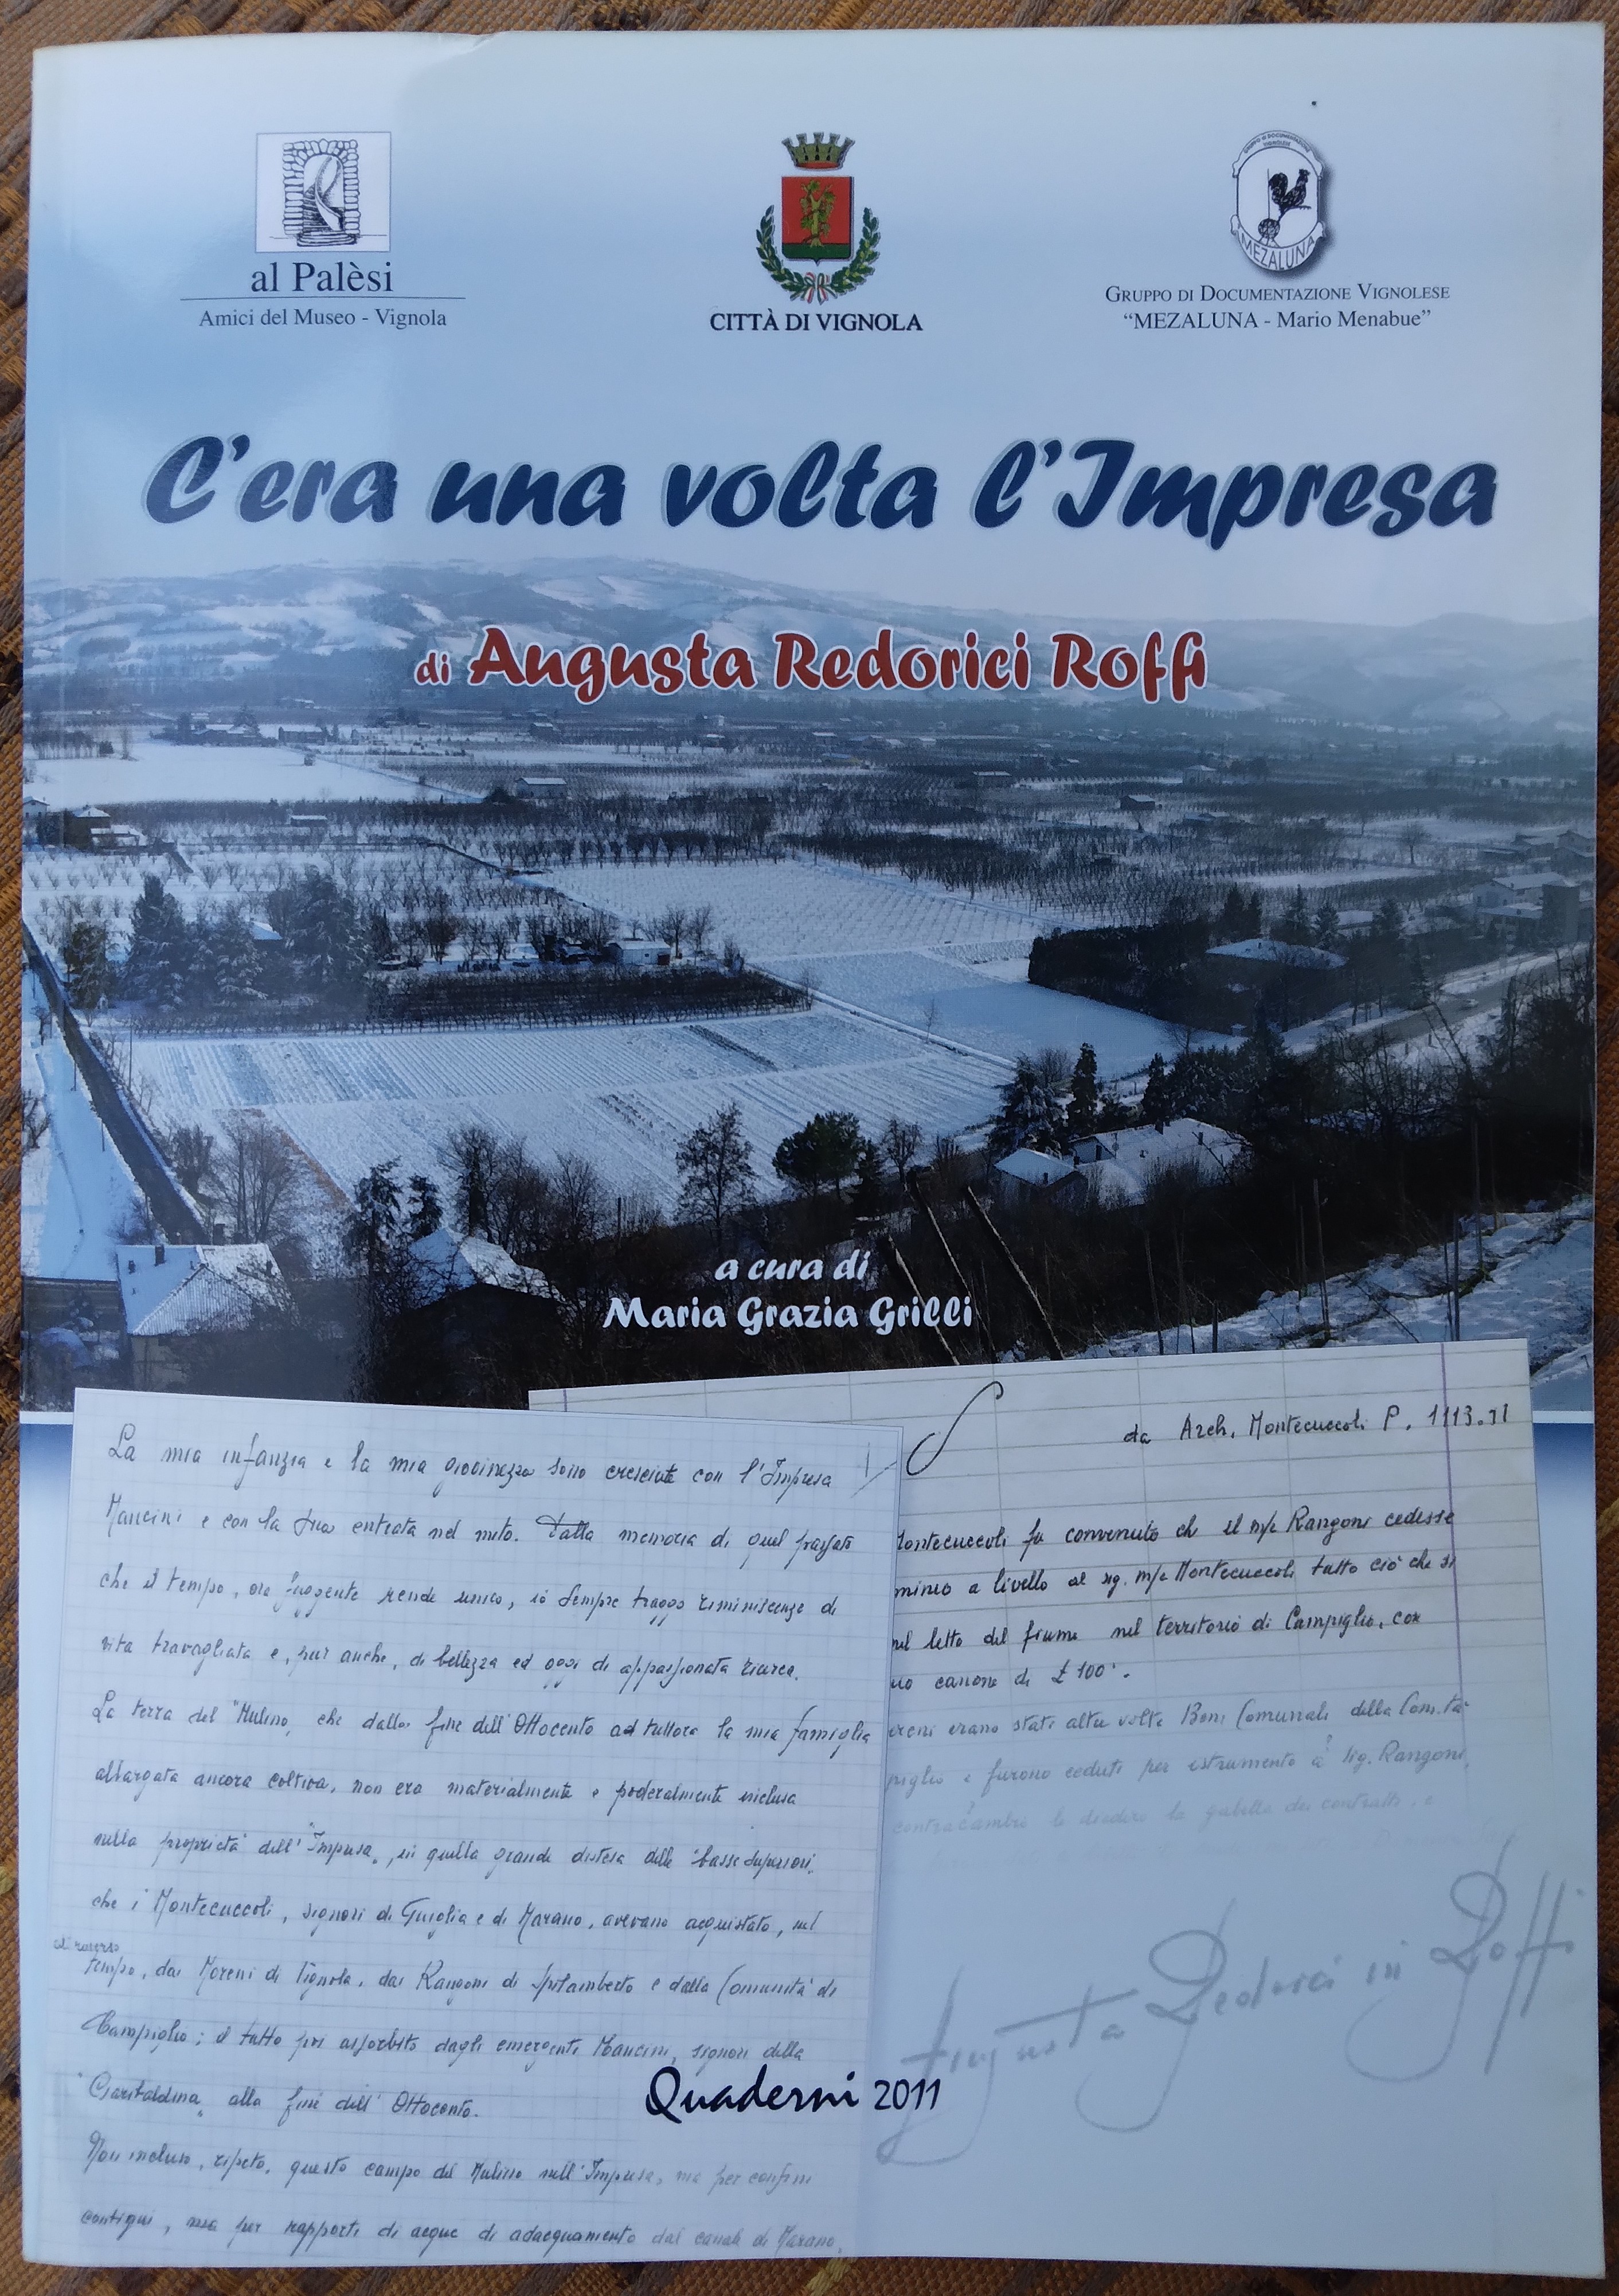 al Palèsi
Amici del Museo - Vignola
CITTÀ DI VIGNOLA
GRUPPO DI DOCUMENTAZIONE VIGNOLESE
MEZALUNA
GRUPPO DI DOCUMENTAZIONE VIGNOLESE
“MEZALUNA - Mario Menabue”
C'era una volta l'Impresa
di Augusta Redorici Roffi
a cura di
Maria Grazia Grilli
La mia infanzia e la mia giovinezza sono cresciute con l'Impresa
Mancini e con la sua entrata nel mito. Dalla memoria di quel passato
che il tempo, ora fuggente rende unico, io sempre traggo reminiscenze di
vita travagliata e, pur anche, di bellezza ed oggi di appassionata ricerca.
La terra del "Mulino, che dalla fine dell'Ottocento ad tuttora la mia famiglia
allargata ancora coltiva, non era materialmente e poderalmente inclusa
nella proprietà dell'"Impresa„, in quella grande distesa delle "basse superiori„
che i Montecuccoli, signori di Guiglia e di Marano, avevano acquistato, nel
tempo, dai Moreni di Vignola, dai Rangoni di Spilamberto e dalla Comunità di
Campiglio; il tutto poi assorbito dagli emergenti Mancini, signori della
"Garibaldina„ alla fine dell'Ottocento.
Non incluso, ripeto, questo campo del Mulino nell'Impresa, ma per confini
contigui, ma per rapporti di acque di adacquamento dal canale di Marano,
da Arch. Montecuccoli P. 1113.
Montecuccoli fu convenuto che il m/e Rangoni cedesse
minio a livello al sig. m/e Montecuccoli tutto ciò che si
nel letto del fiume nel territorio di Campiglio, con
uo canone di £ 100.
erreni erano stati altre volte Beni Comunali della Com.tà
piglio e furono ceduti per istrumento a sig. Rangoni,
contracambio le diedero la gabella dei contratti. e
Augusta Redorici in Roffi
Quaderni 2011